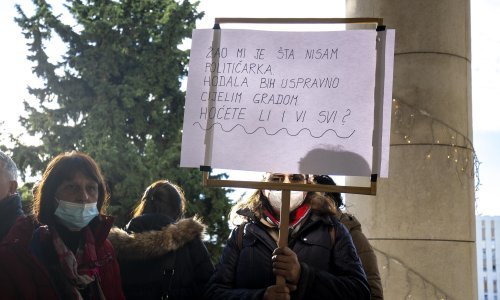 ŽAO MI JE ŠTA NISAM
POLITIČARKA.
HODALA BIH USPRAVNO
CIJELIM GRADOM.
HOĆETE LI I VI SVI?